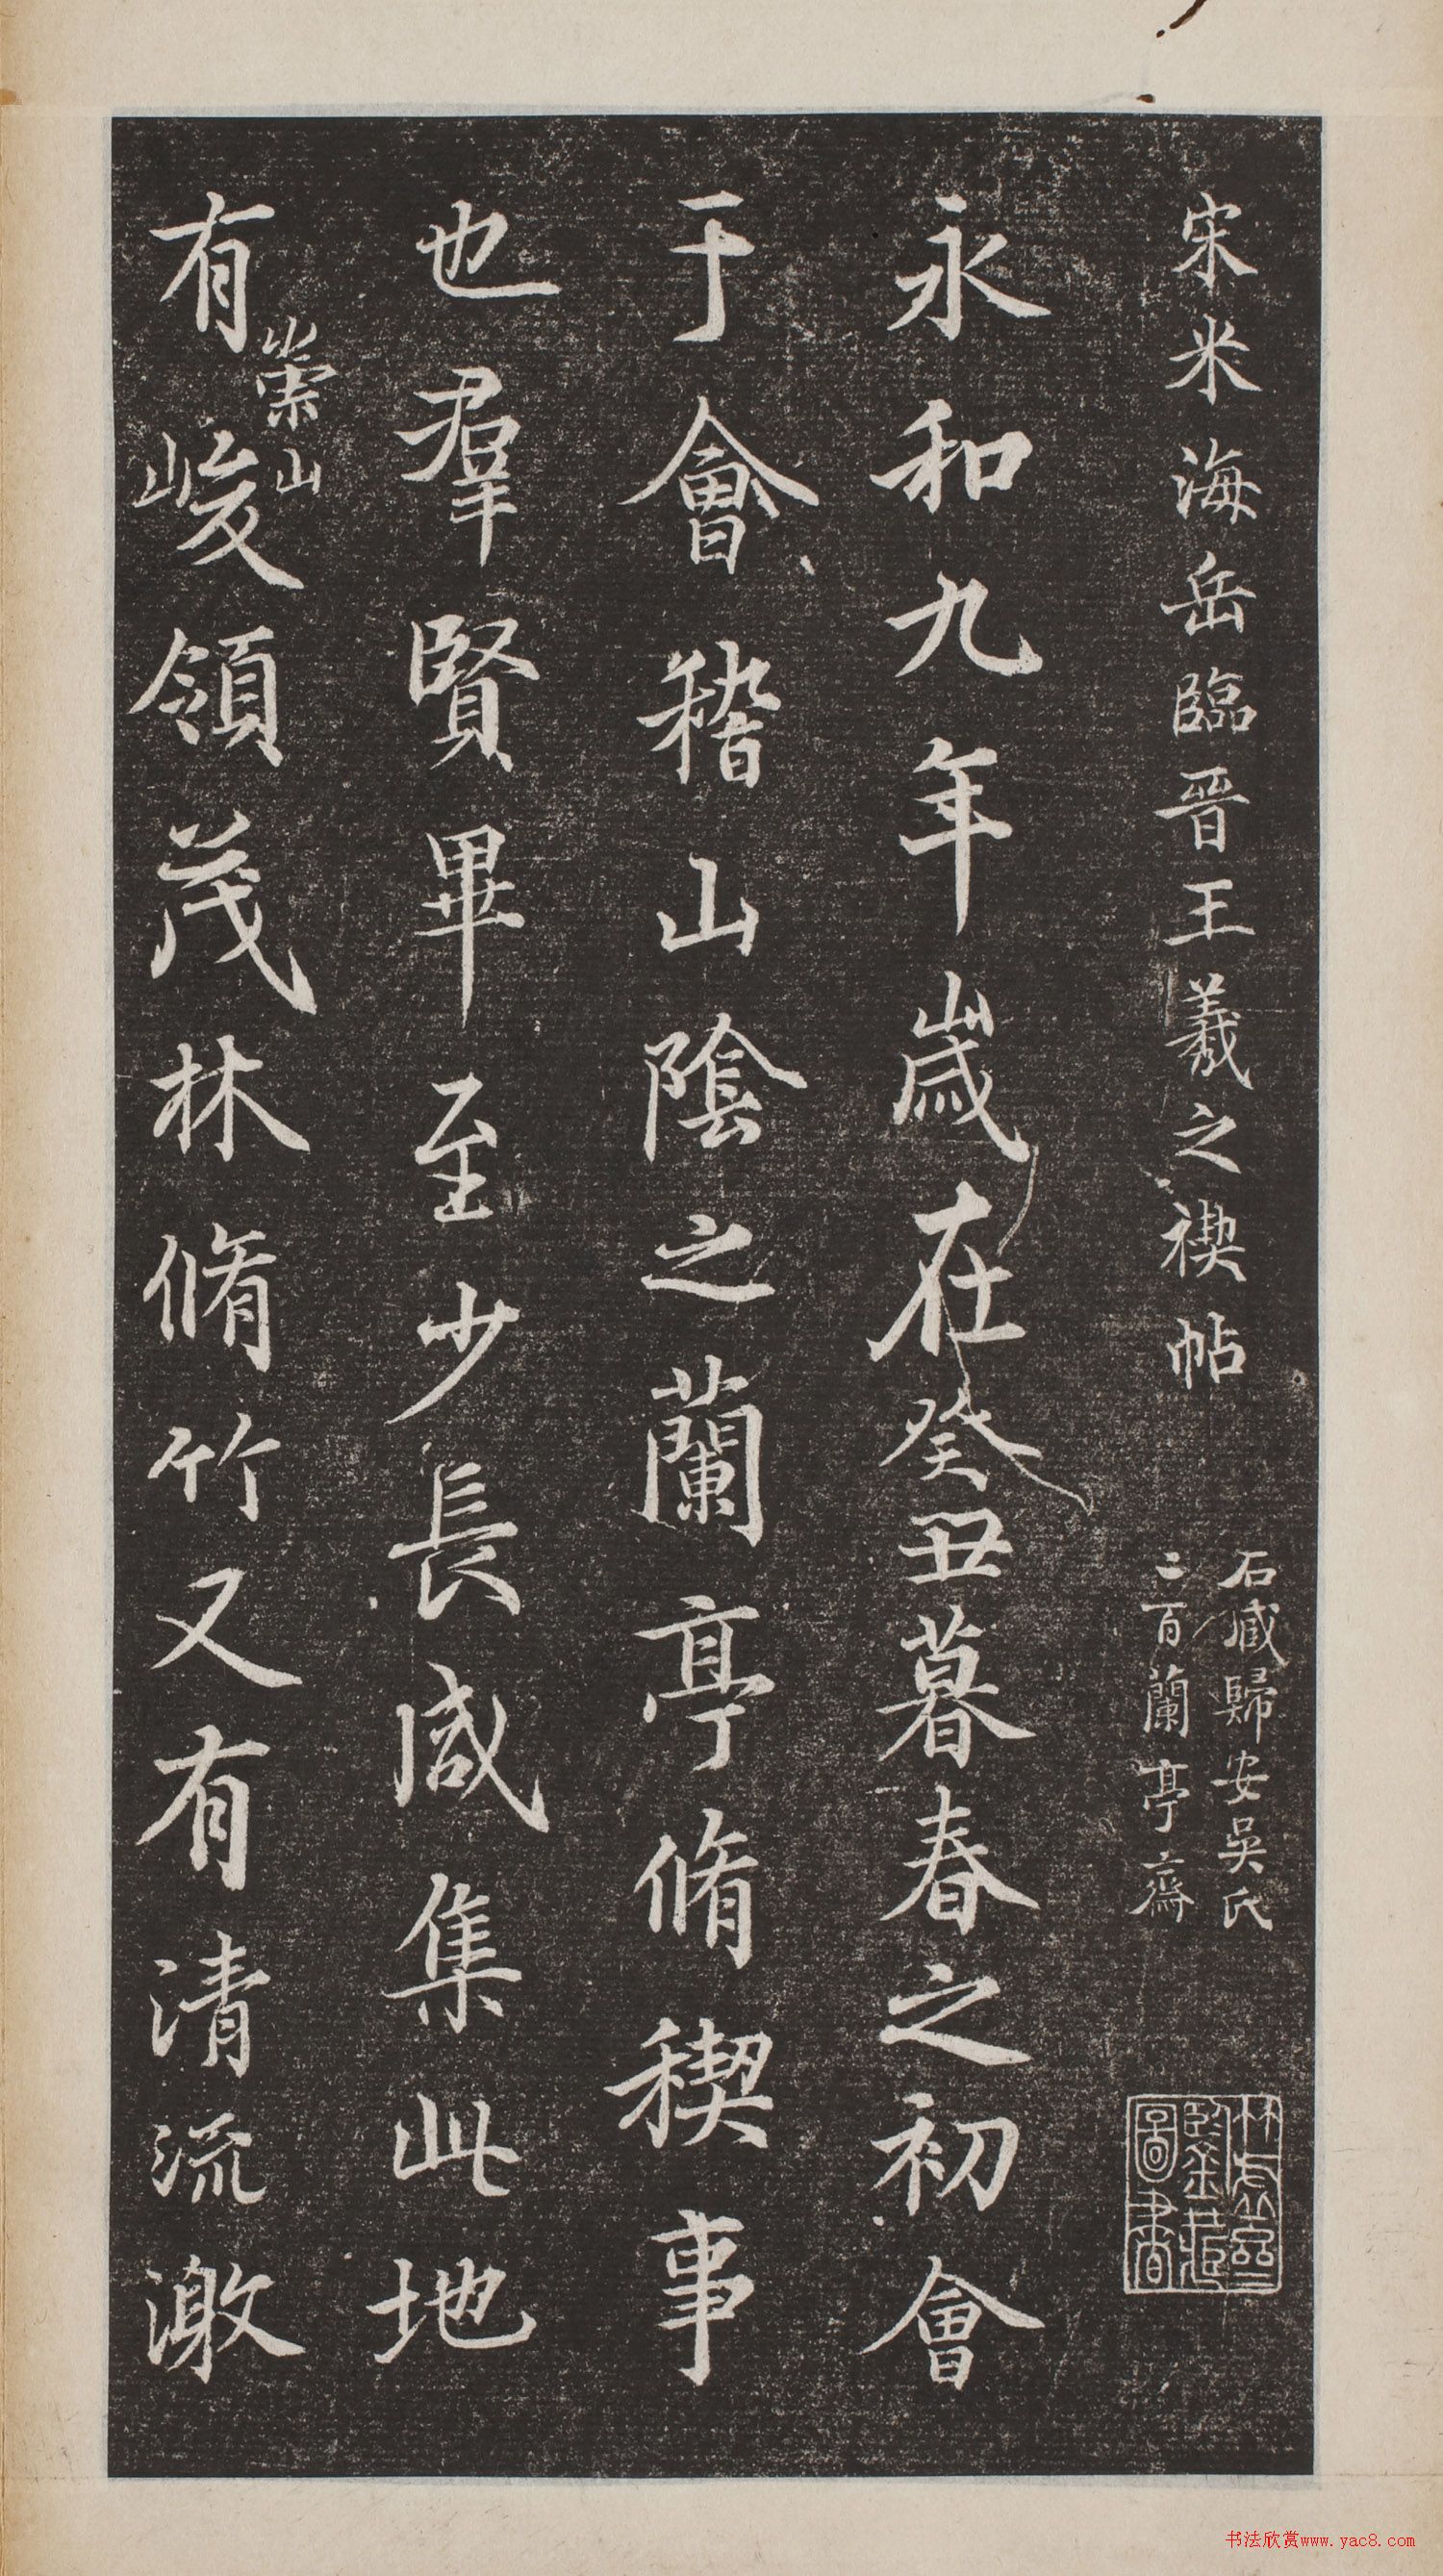 宋米海岳臨晉王羲之禊帖
石藏歸安吳氏
二百蘭亭齋
永和九年歲在癸丑暮春之初會
于會稽山陰之蘭亭脩稧事
也羣賢畢至少長咸集此地
有崇山峻領茂林脩竹又有清流激
書法欣赏www.yac8.com